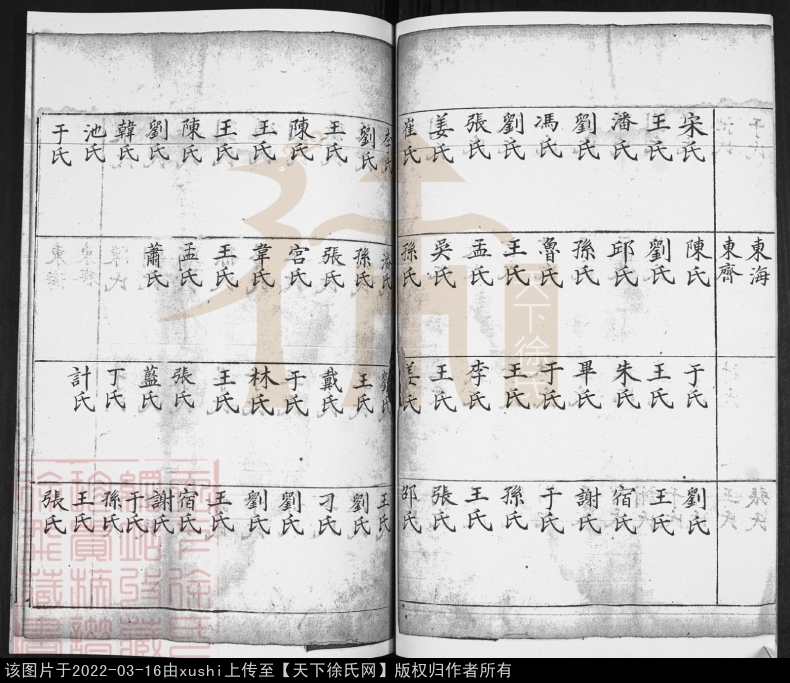 東海
東齊
宋氏 王氏 潘氏 劉氏 馮氏 劉氏 張氏 姜氏 崔氏
陳氏 劉氏 邱氏 孫氏 魯氏 王氏 孟氏 吳氏 孫氏
于氏 王氏 朱氏 畢氏 于氏 王氏 李氏 王氏 姜氏
劉氏 王氏 宿氏 謝氏 于氏 孫氏 王氏 張氏 邵氏
李氏 劉氏 王氏 陳氏 王氏 王氏 陳氏 劉氏 韓氏 池氏 于氏
潘氏 孫氏 張氏 宮氏 韋氏 王氏 孟氏 蕭氏
劉氏 王氏 戴氏 于氏 林氏 王氏 張氏 藍氏 丁氏 計氏
王氏 劉氏 刁氏 劉氏 劉氏 王氏 宿氏 謝氏 于氏 孫氏 王氏 張氏
天下徐氏
该图片于2022-03-16由xushi上传至【天下徐氏网】版权归作者所有